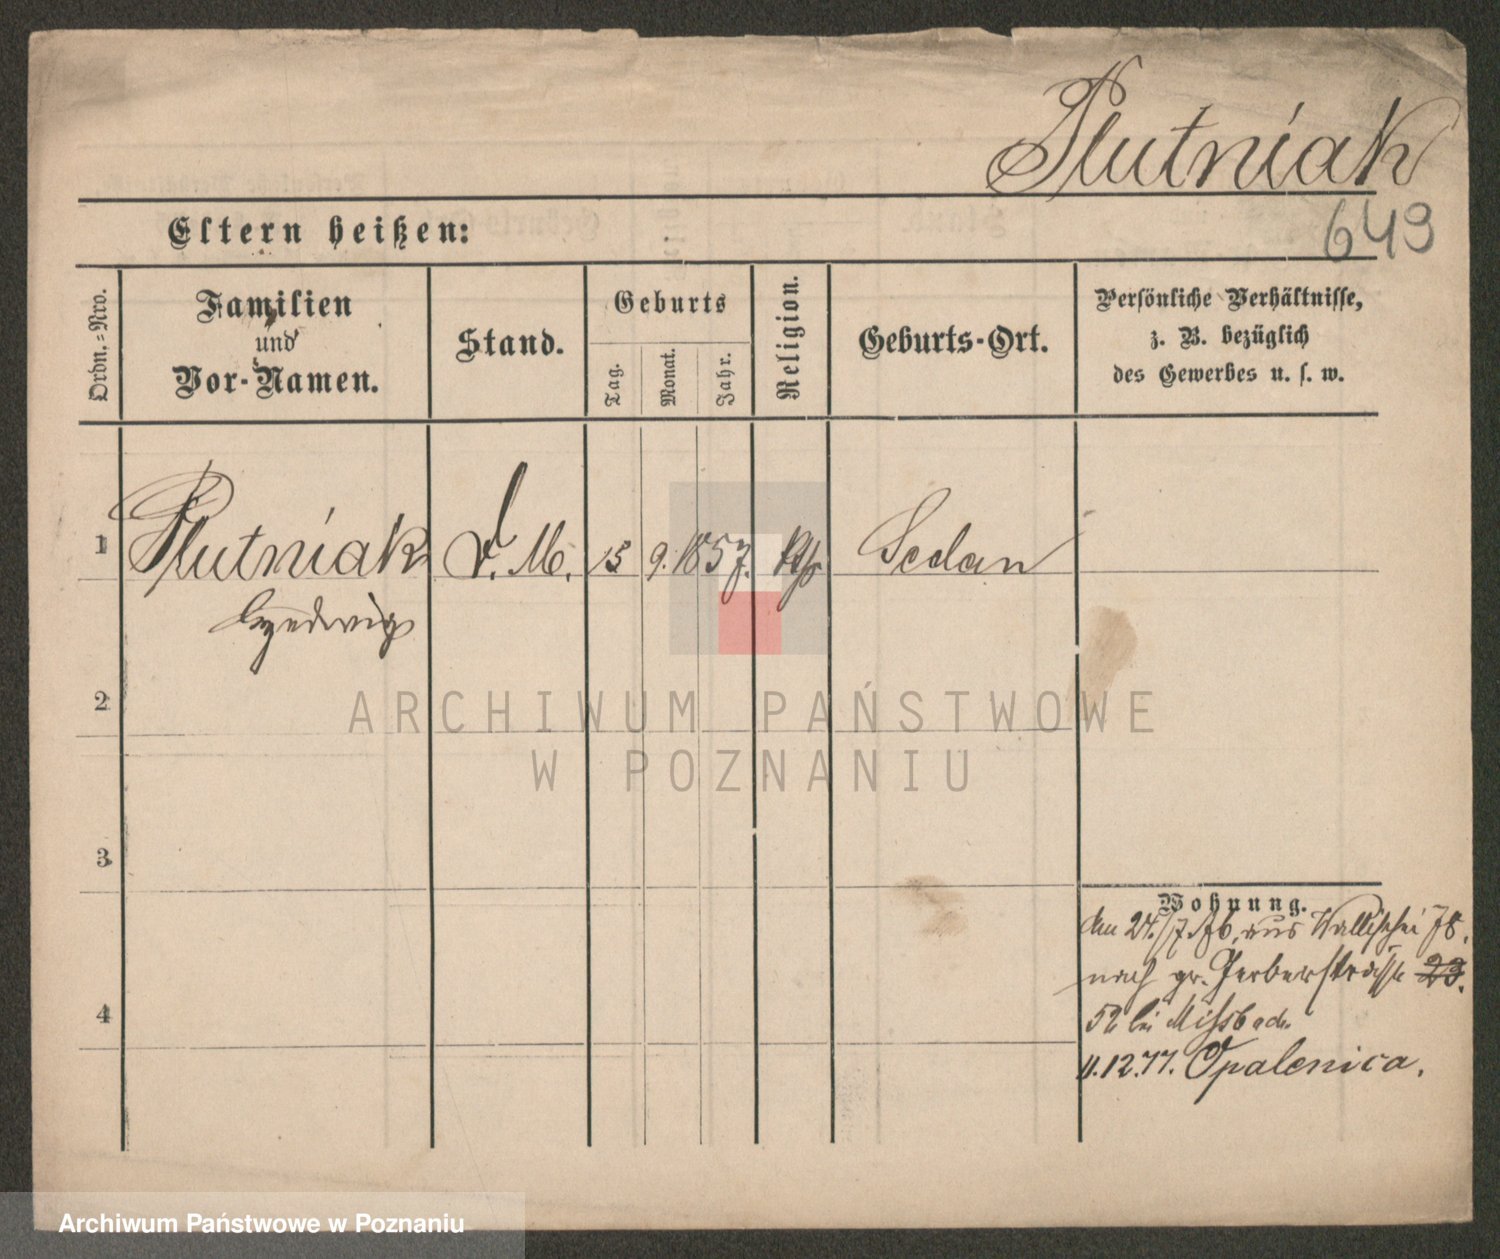 Plutniak
649
Eltern heißen:
Ordn.-Nro.
Familien
und
Vor-Namen.
Stand.
Geburts
Tag.
Monat.
Jahr.
Religion.
Geburts-Ort.
Persönliche Verhältnisse,
z. B. bezüglich
des Gewerbes u. s. w.
1 Plutniak d. M. 15 9. 1857. Kth Sedan
Hedwig
2
3
4
Wohnung.
den 24./7.76. aus Wallischei 78.
nach gr. Gerberstrasse 23.
52 bei
11.12.77. Opalenica.
ARCHIWUM PAŃSTWOWE
W POZNANIU
Archiwum Państwowe w Poznaniu